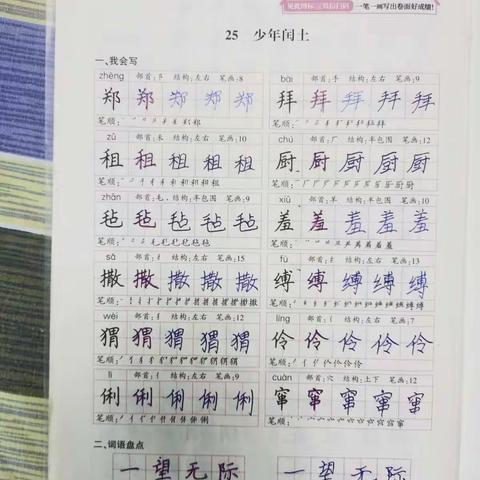 一笔一画写出卷面好成绩!
25 少年闰土
一、我会写
zhèng 部首:阝 结构:左右 笔画:8
郑 郑 郑 郑 郑
笔顺:
bài 部首:手 结构:左右 笔画:9
拜 拜 拜 拜 拜
笔顺:
zū 部首:禾 结构:左右 笔画:10
租 租 租 租 租
笔顺:
chú 部首:厂 结构:半包围 笔画:12
厨 厨 厨 厨 厨
笔顺:
zhān 部首:毛 结构:半包围 笔画:9
毡 毡 毡 毡 毡
笔顺:
xiū 部首:羊 结构:半包围 笔画:10
羞 羞 羞 羞 羞
笔顺:
sǎ 部首:扌 结构:左右 笔画:15
撒 撒 撒 撒 撒
笔顺:
fù 部首:纟 结构:左右
缚 缚 缚 缚 缚
笔顺:
wèi 部首:犭 结构:左右 笔画:12
猬 猬 猬 猬 猬
笔顺:
líng 部首:亻 结构:左右 笔画:7
伶 伶 伶 伶 伶
笔顺:
lì 部首:亻 结构:左右 笔画:9
俐 俐 俐 俐 俐
笔顺:
cuàn 部首:穴 结构:上下 笔画:12
窜 窜 窜 窜 窜
笔顺:
二、词语盘点
一望无际 一望无际